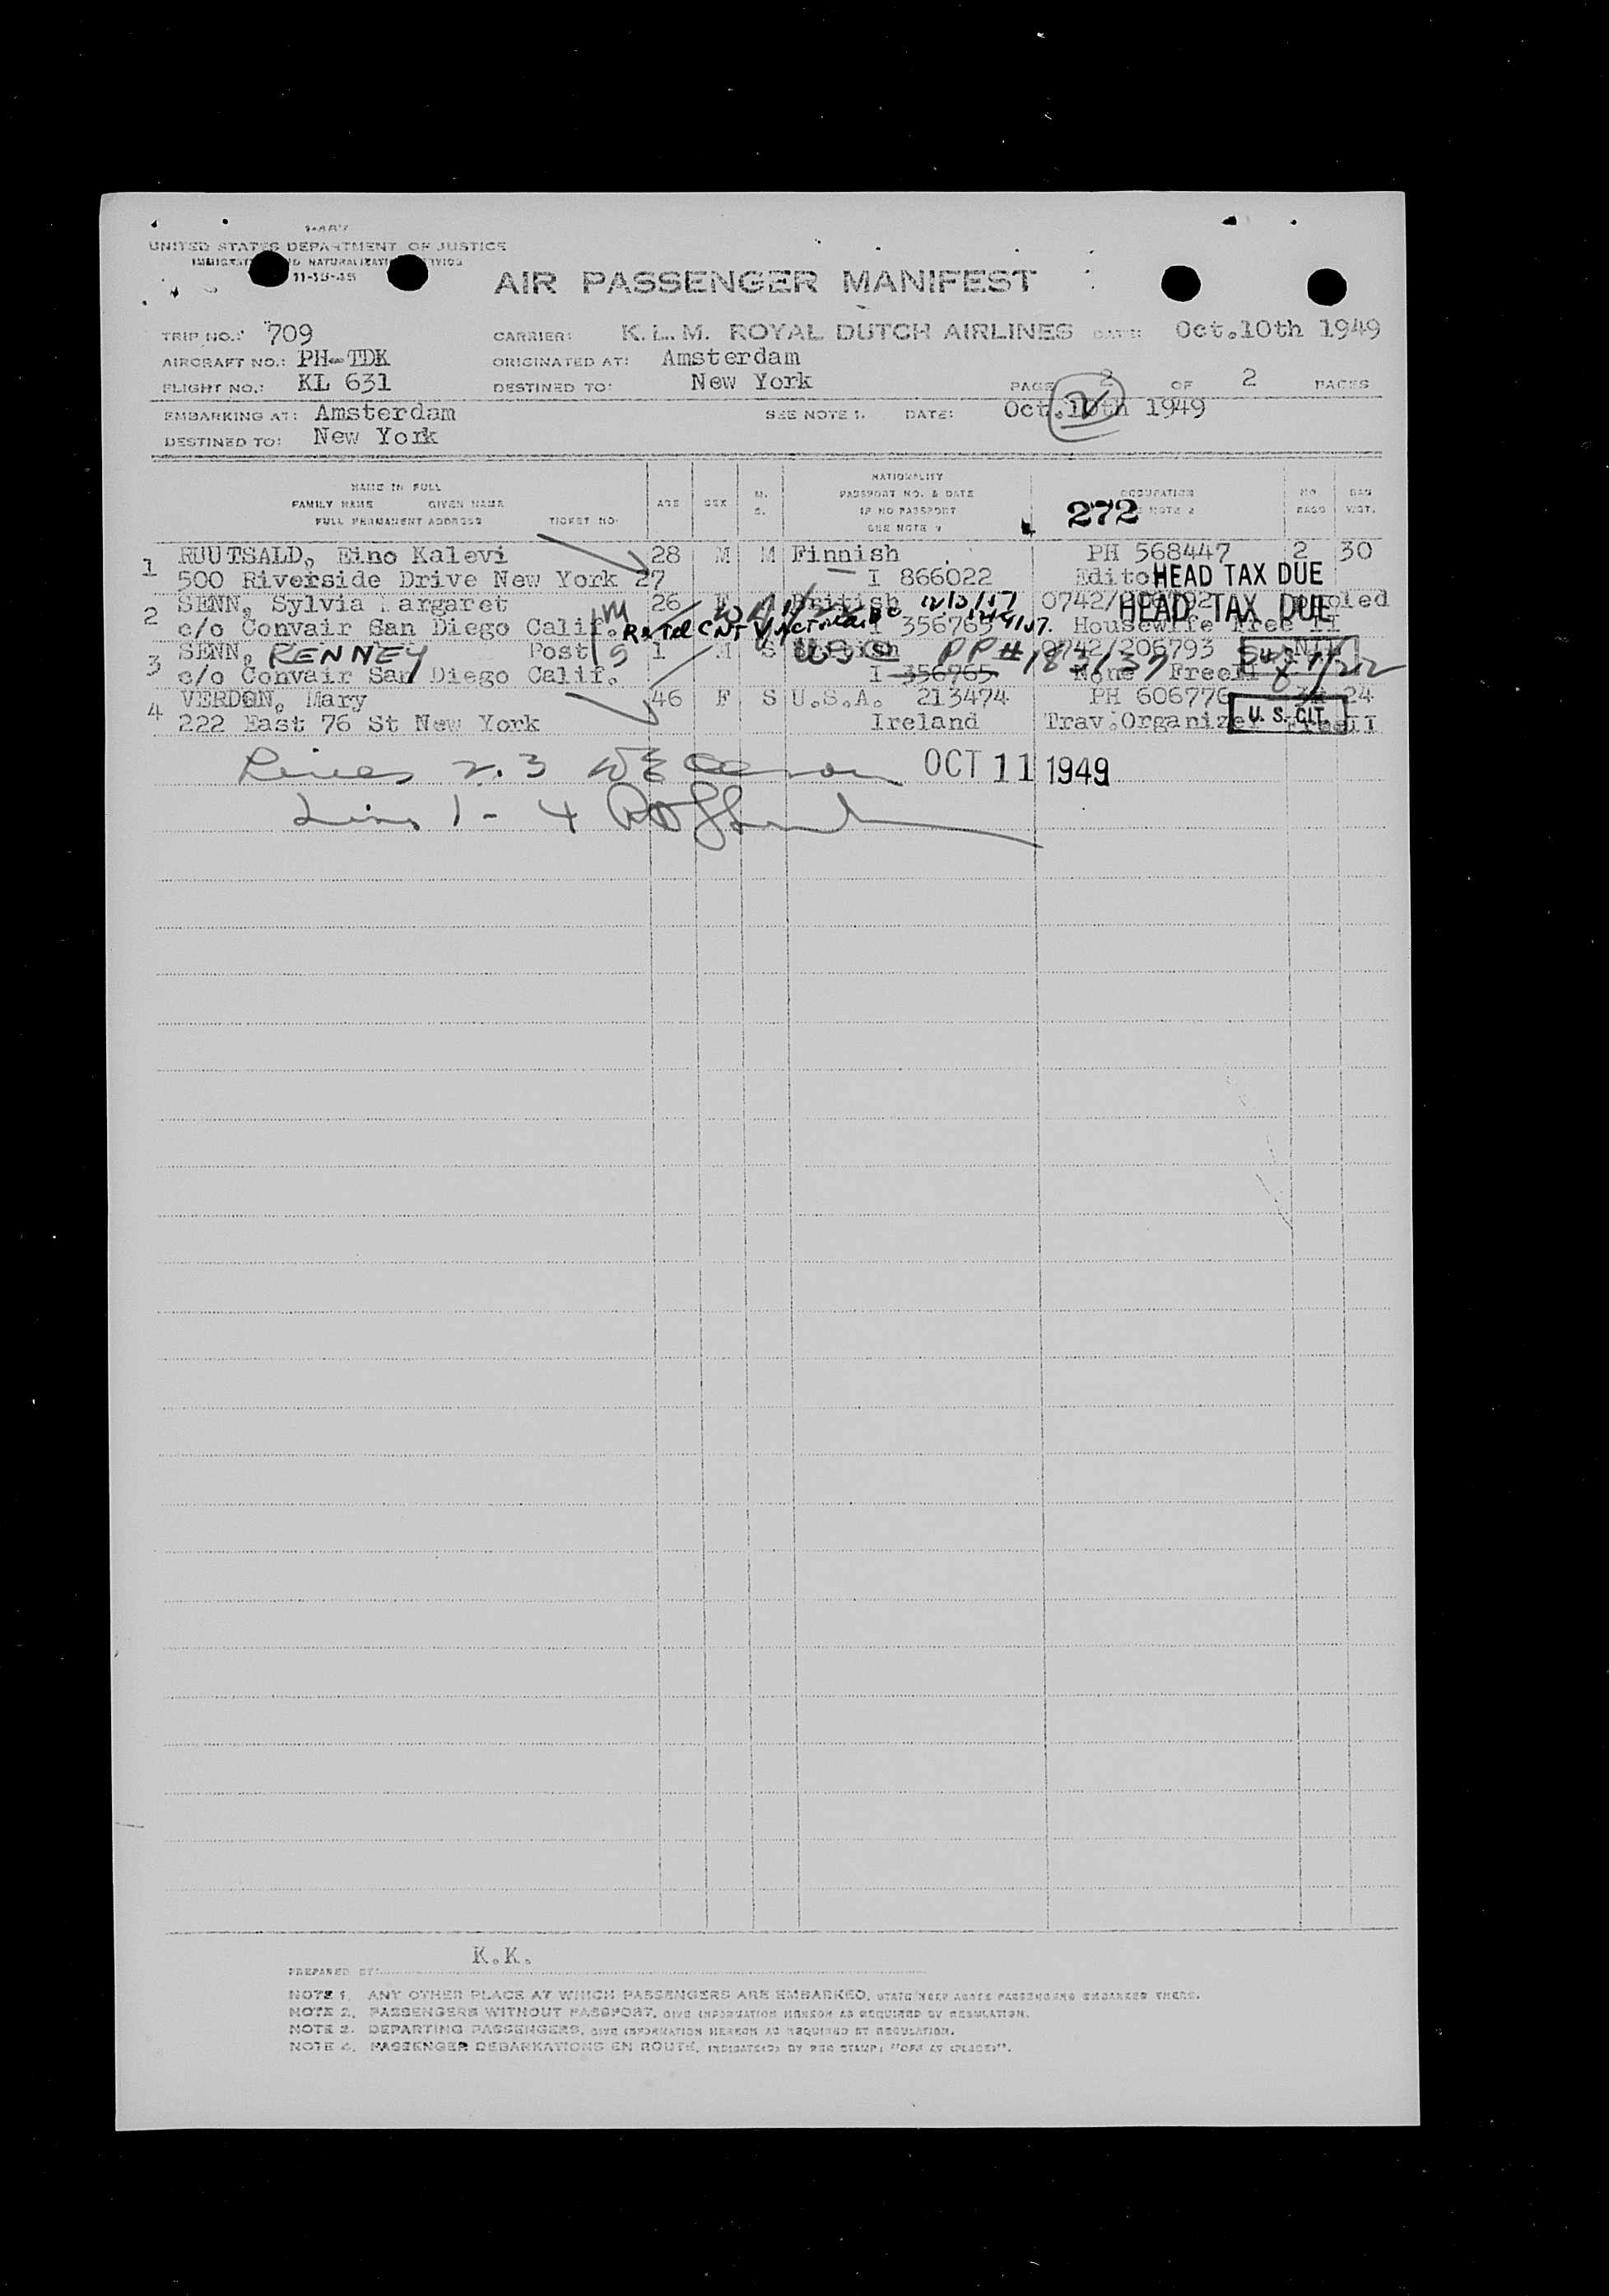 I-487
UNITED STATES DEPARTMENT OF JUSTICE
11-15-45
AIR PASSENGER MANIFEST
TRIP NO.: 709 CARRIER: K. L. M. ROYAL DUTCH AIRLINES DATE: Oct.10th 1949
AIRCRAFT NO.: PH-TDK ORIGINATED AT: Amsterdam
FLIGHT NO.: KL 631 DESTINED TO: New York PAGE 2 OF 2 PAGES
EMBARKING AT: Amsterdam SEE NOTE 1. DATE: Oct.10th 1949
DESTINED TO: New York
2
NAME IN FULL NATIONALITY
FAMILY NAME GIVEN NAME AGE SEX M. PASSPORT NO. & DATE OCCUPATION NO BAG
FULL PERMANENT ADDRESS TICKET NO. S. IF NO PASSPORT NOTE 2 BAGG WGT.
272
1 RUUTSALD, Eino Kalevi 28 M M Finnish PH 568447 2 30
500 Riverside Drive New York 27 I 866022 HEAD TAX DUE
2 SENN, Sylvia Margaret 26 F British 12/3/57 HEAD TAX DUE
c/o Convair San Diego Calif. I 356765 Housewife Free II
3 SENN, RENNEY Post 1 M S USC PP# 183137 0742/206793
c/o Convair San Diego Calif. I 356765 None FreeII
4 VERDON, Mary 46 F S U.S.A. 213474 PH 606776 24
222 East 76 St New York Ireland Trav.Organizer U. S. CIT.
Lines 2.3 OCT 11 1949
Lines 1 - 4
K.K.
PREPARED BY:
NOTE 1. ANY OTHER PLACE AT WHICH PASSENGERS ARE EMBARKED, STATE HERE ABOVE PASSENGERS EMBARKED THERE.
NOTE 2. PASSENGERS WITHOUT PASSPORT, GIVE INFORMATION HEREON AS REQUIRED BY REGULATION.
NOTE 3. DEPARTING PASSENGERS, GIVE INFORMATION HEREON AS REQUIRED BY REGULATION.
NOTE 4. PASSENGER DEBARKATIONS EN ROUTE, INDICATE(D) BY PEN STAMP: "OFF AT (PLACE)".